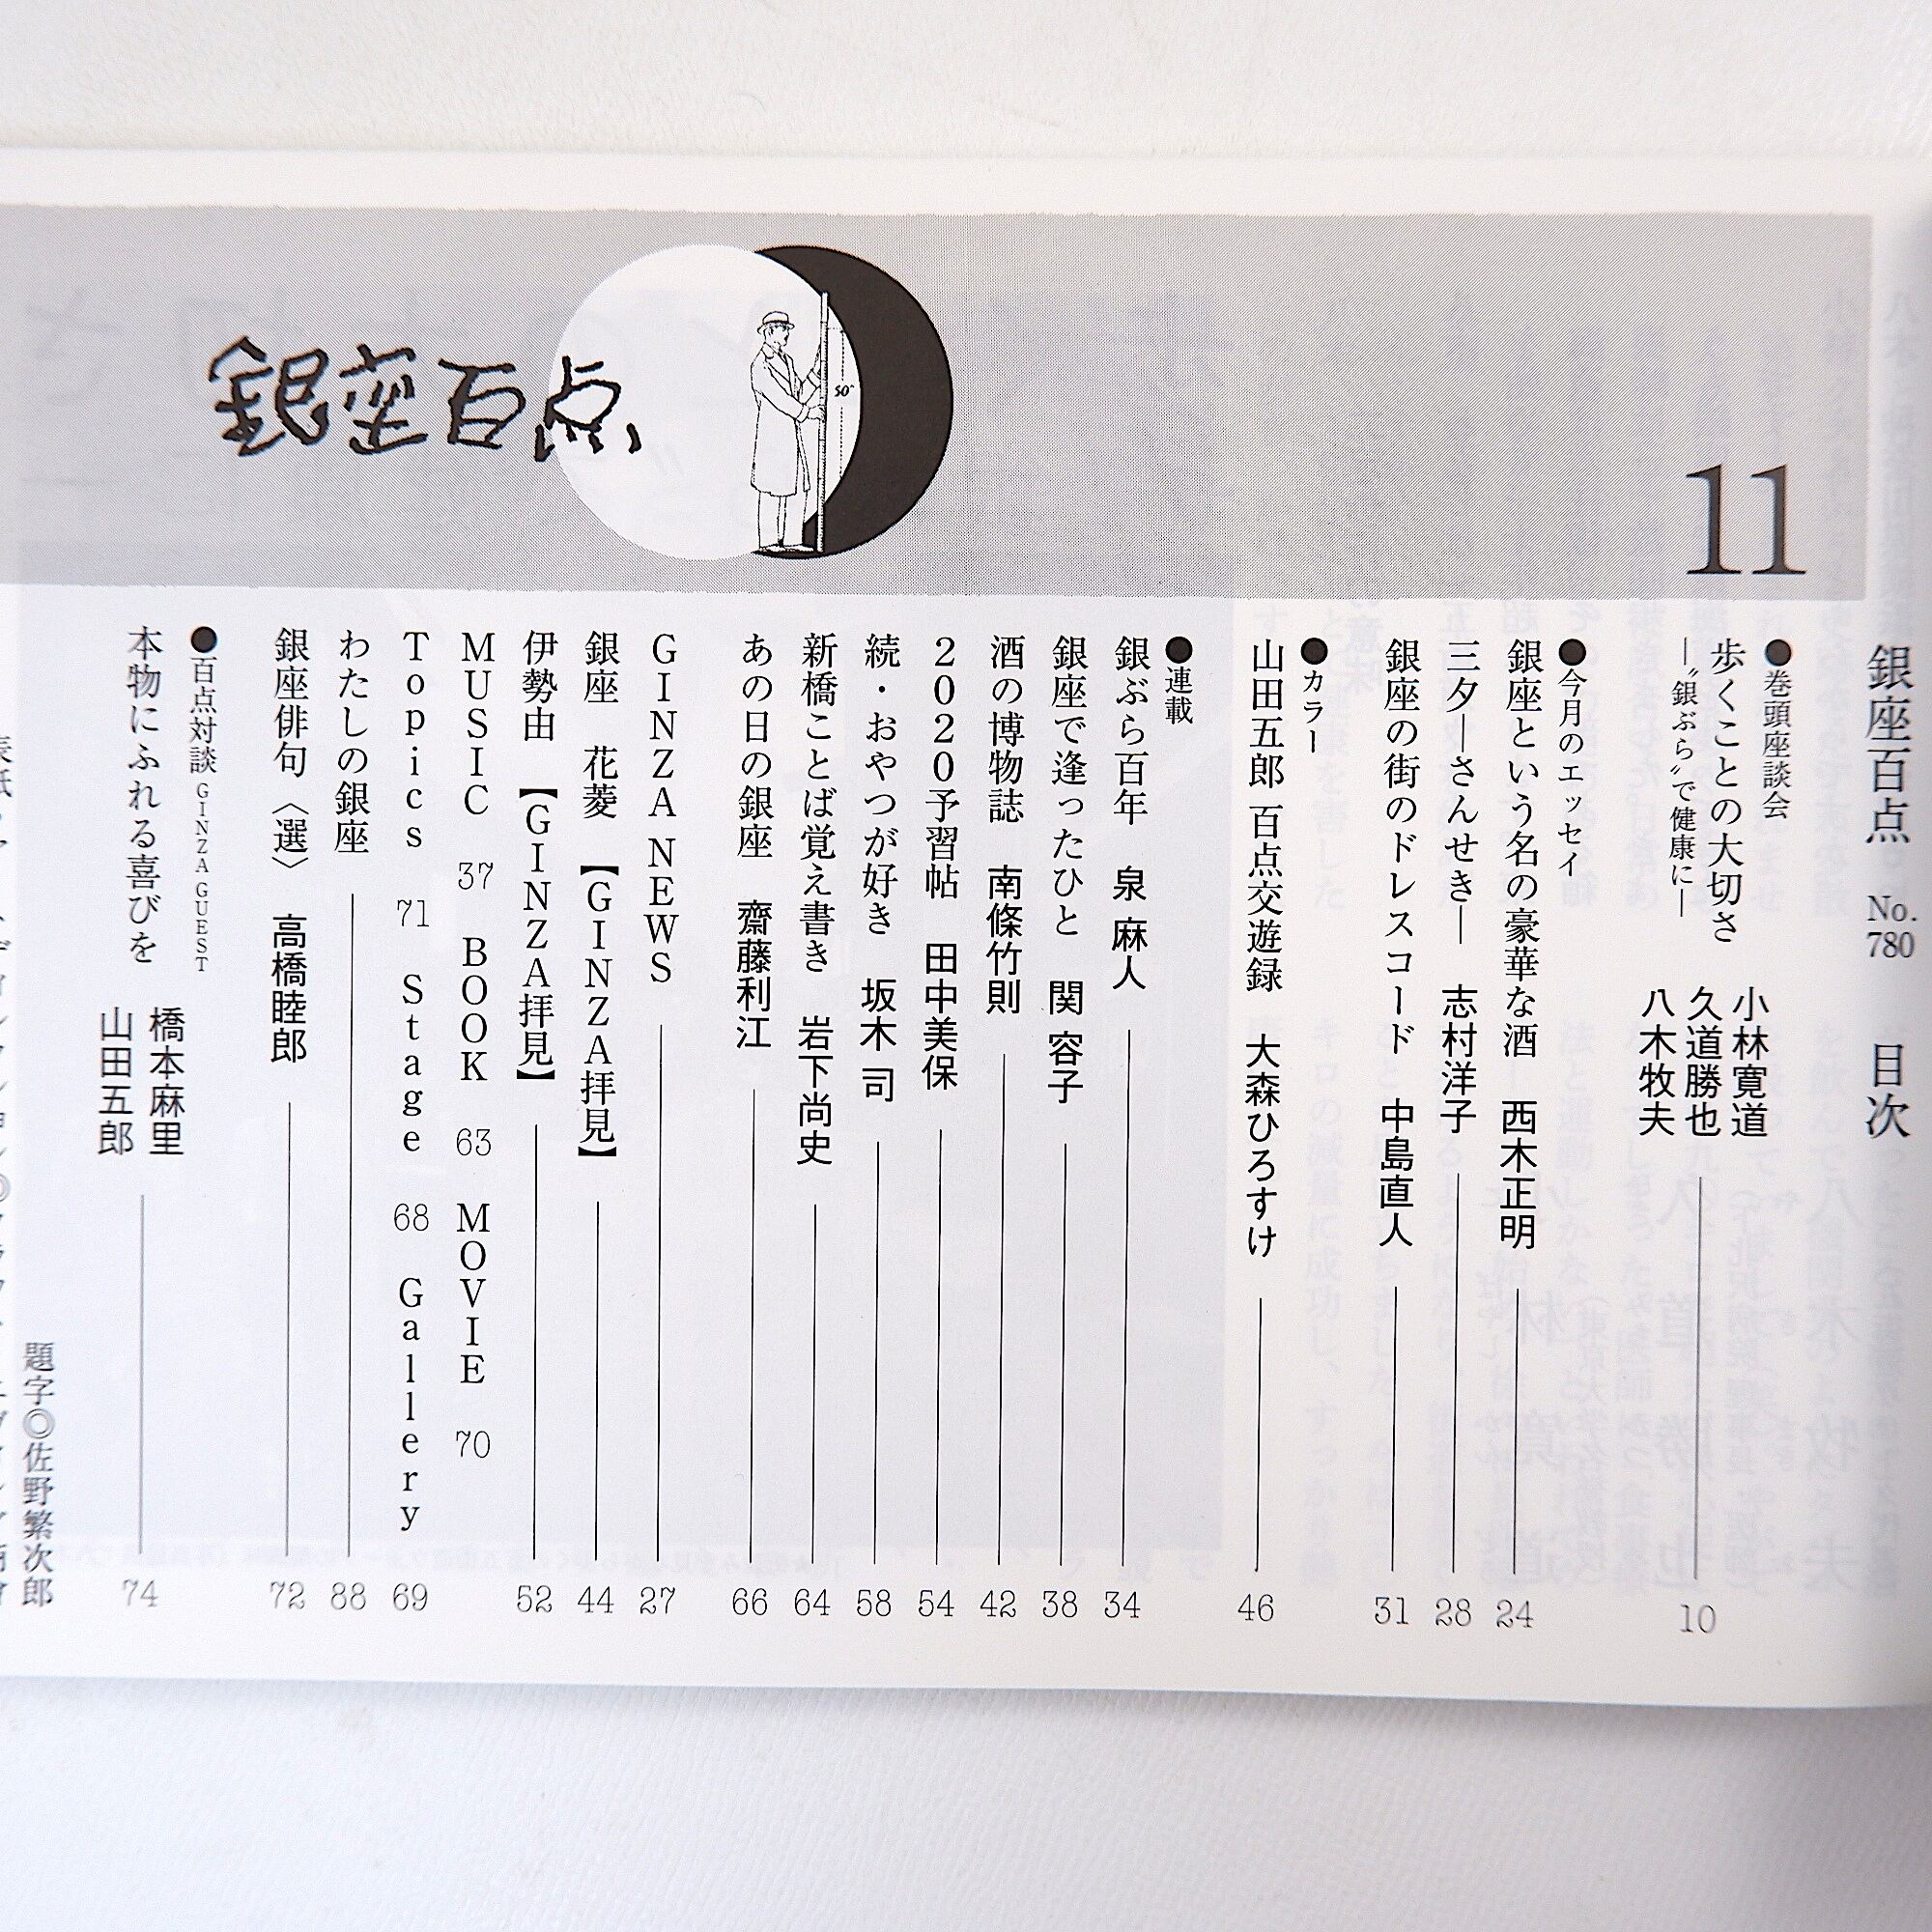 銀座百点 No.780 目次
11
銀座百点
50°
●巻頭座談会
歩くことの大切さ
―〝銀ぶら〟で健康に―
小林寛道
久道勝也
八木牧夫
10
●今月のエッセイ
銀座という名の豪華な酒 西木正明 24
三夕―さんせき― 志村洋子 28
銀座の街のドレスコード 中島直人 31
●カラー
山田五郎 百点交遊録 大森ひろすけ 46
●連載
銀ぶら百年 泉 麻人 34
銀座で逢ったひと 関 容子 38
酒の博物誌 南條竹則 42
2020予習帖 田中美保 54
続・おやつが好き 坂木 司 58
新橋ことば覚え書き 岩下尚史 64
あの日の銀座 齋藤利江 66
GINZA NEWS 27
銀座 花菱 【GINZA拝見】 44
伊勢由 【GINZA拝見】 52
MUSIC 37 BOOK 63 MOVIE 70
Topics 71 Stage 68 Gallery 69
わたしの銀座 88
銀座俳句〈選〉 高橋睦郎 72
●百点対談 GINZA GUEST
本物にふれる喜びを
橋本麻里
山田五郎
74
題字◎佐野繁次郎